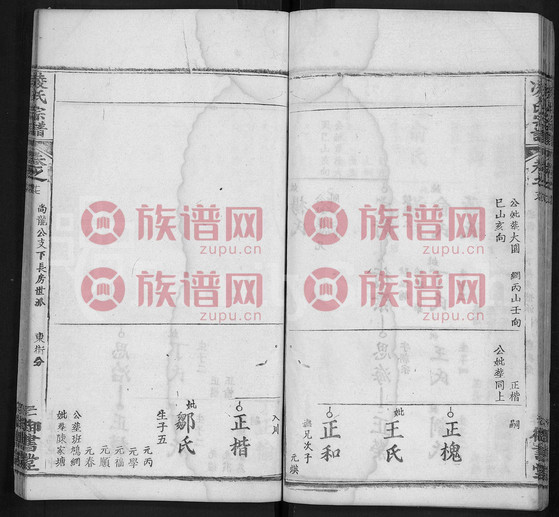 公妣葬大圓
網丙山壬向
巳山亥向
正楷
嗣
公妣葬同上
正槐
妣
王氏
正和
撫兄次子
元瑛
入川
正楷
妣
鄒氏
生子五
元丙
元學
元福
元順
元春
公葬班鳩網
妣葬陳家塘
凌氏宗譜
卷之
尚龍公支下長房世派
東街分
御書堂
族谱网
zupu.cn
族谱网
zupu.cn
族谱网
zupu.cn
族谱网
zupu.cn